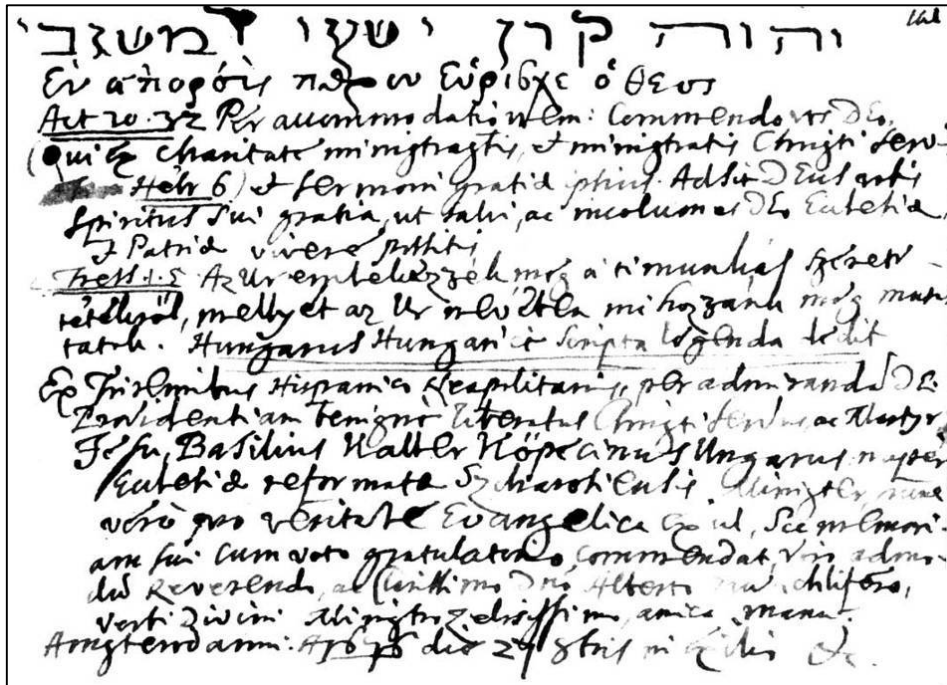 יהוה קרן ישעי ומשגבי
Ἐν ἀπόροις πόρον εὕρισκε ὁ θεος
Act 20. 32 Per accommodationem: Commendo vos DEo,
(Qui ex charitate ministrastis, et ministratis Christi servis
Hebr 6) et sermoni gratiæ ipsius. Adsit DEus vobis
Spiritus sui gratia, ut salvi, ac incolumes DEo Ecclesiæ,
et Patriæ vivere possitis
Az Ur emlekezzék meg a ti munkás szerete-
tetekröl, mellyet az Ur nevében mi hozzánk meg muta-
tatok. Hungarus Hungaricè scripta legenda dedit
Ex Triremibus Hispanico Neapolitanis, per admirandā DEi
Providentiam benignè liberatus Christi servus, ac Martyr
Jesu, Basilius Kalter Köpecinus Ungarus nuper
Ecclesiæ reformatæ Minister, nunc
verò pro veritate Evangelica Exul, memori-
am sui cum voto commendat, viro admo-
dū Reverendo, ac Clarissimo Dnō Alberto
verbi Divini Ministro amica manu.
Amsterdami: die 29 8bris in Exilio